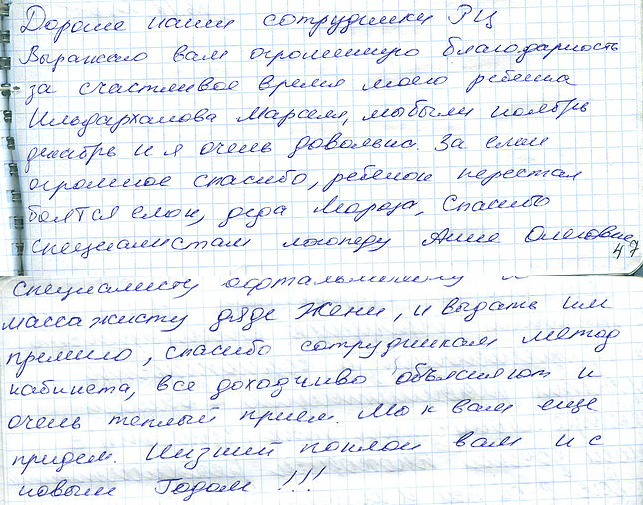 Дорогие наши сотрудники РЦ
Выражаю вам огромнную благодарность
за счастливое время моего ребенка
Ильдарханова Марселя, мы были ноябрь
декабрь и я очень довольна. За елки
огромное спасибо, ребенок перестал
боятся елок, деда Мороза, Спасибо
специалистам логопеду Анне Олеговне
47
специалисту
массажисту дяде Жени, и выдать им
премию, спасибо сотрудникам метод
кабинета, все доходчиво объясняют и
очень теплый прием. Мы к вам еще
придем. Низкий поклон вам и с
новым Годом!!!